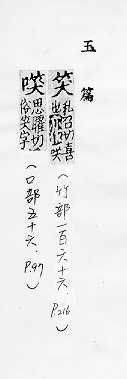 玉篇
笑 私召切喜也亦作咲（竹部一百六十六．P.216）
㗛 思曜切俗笑字（口部五十六．P.97）